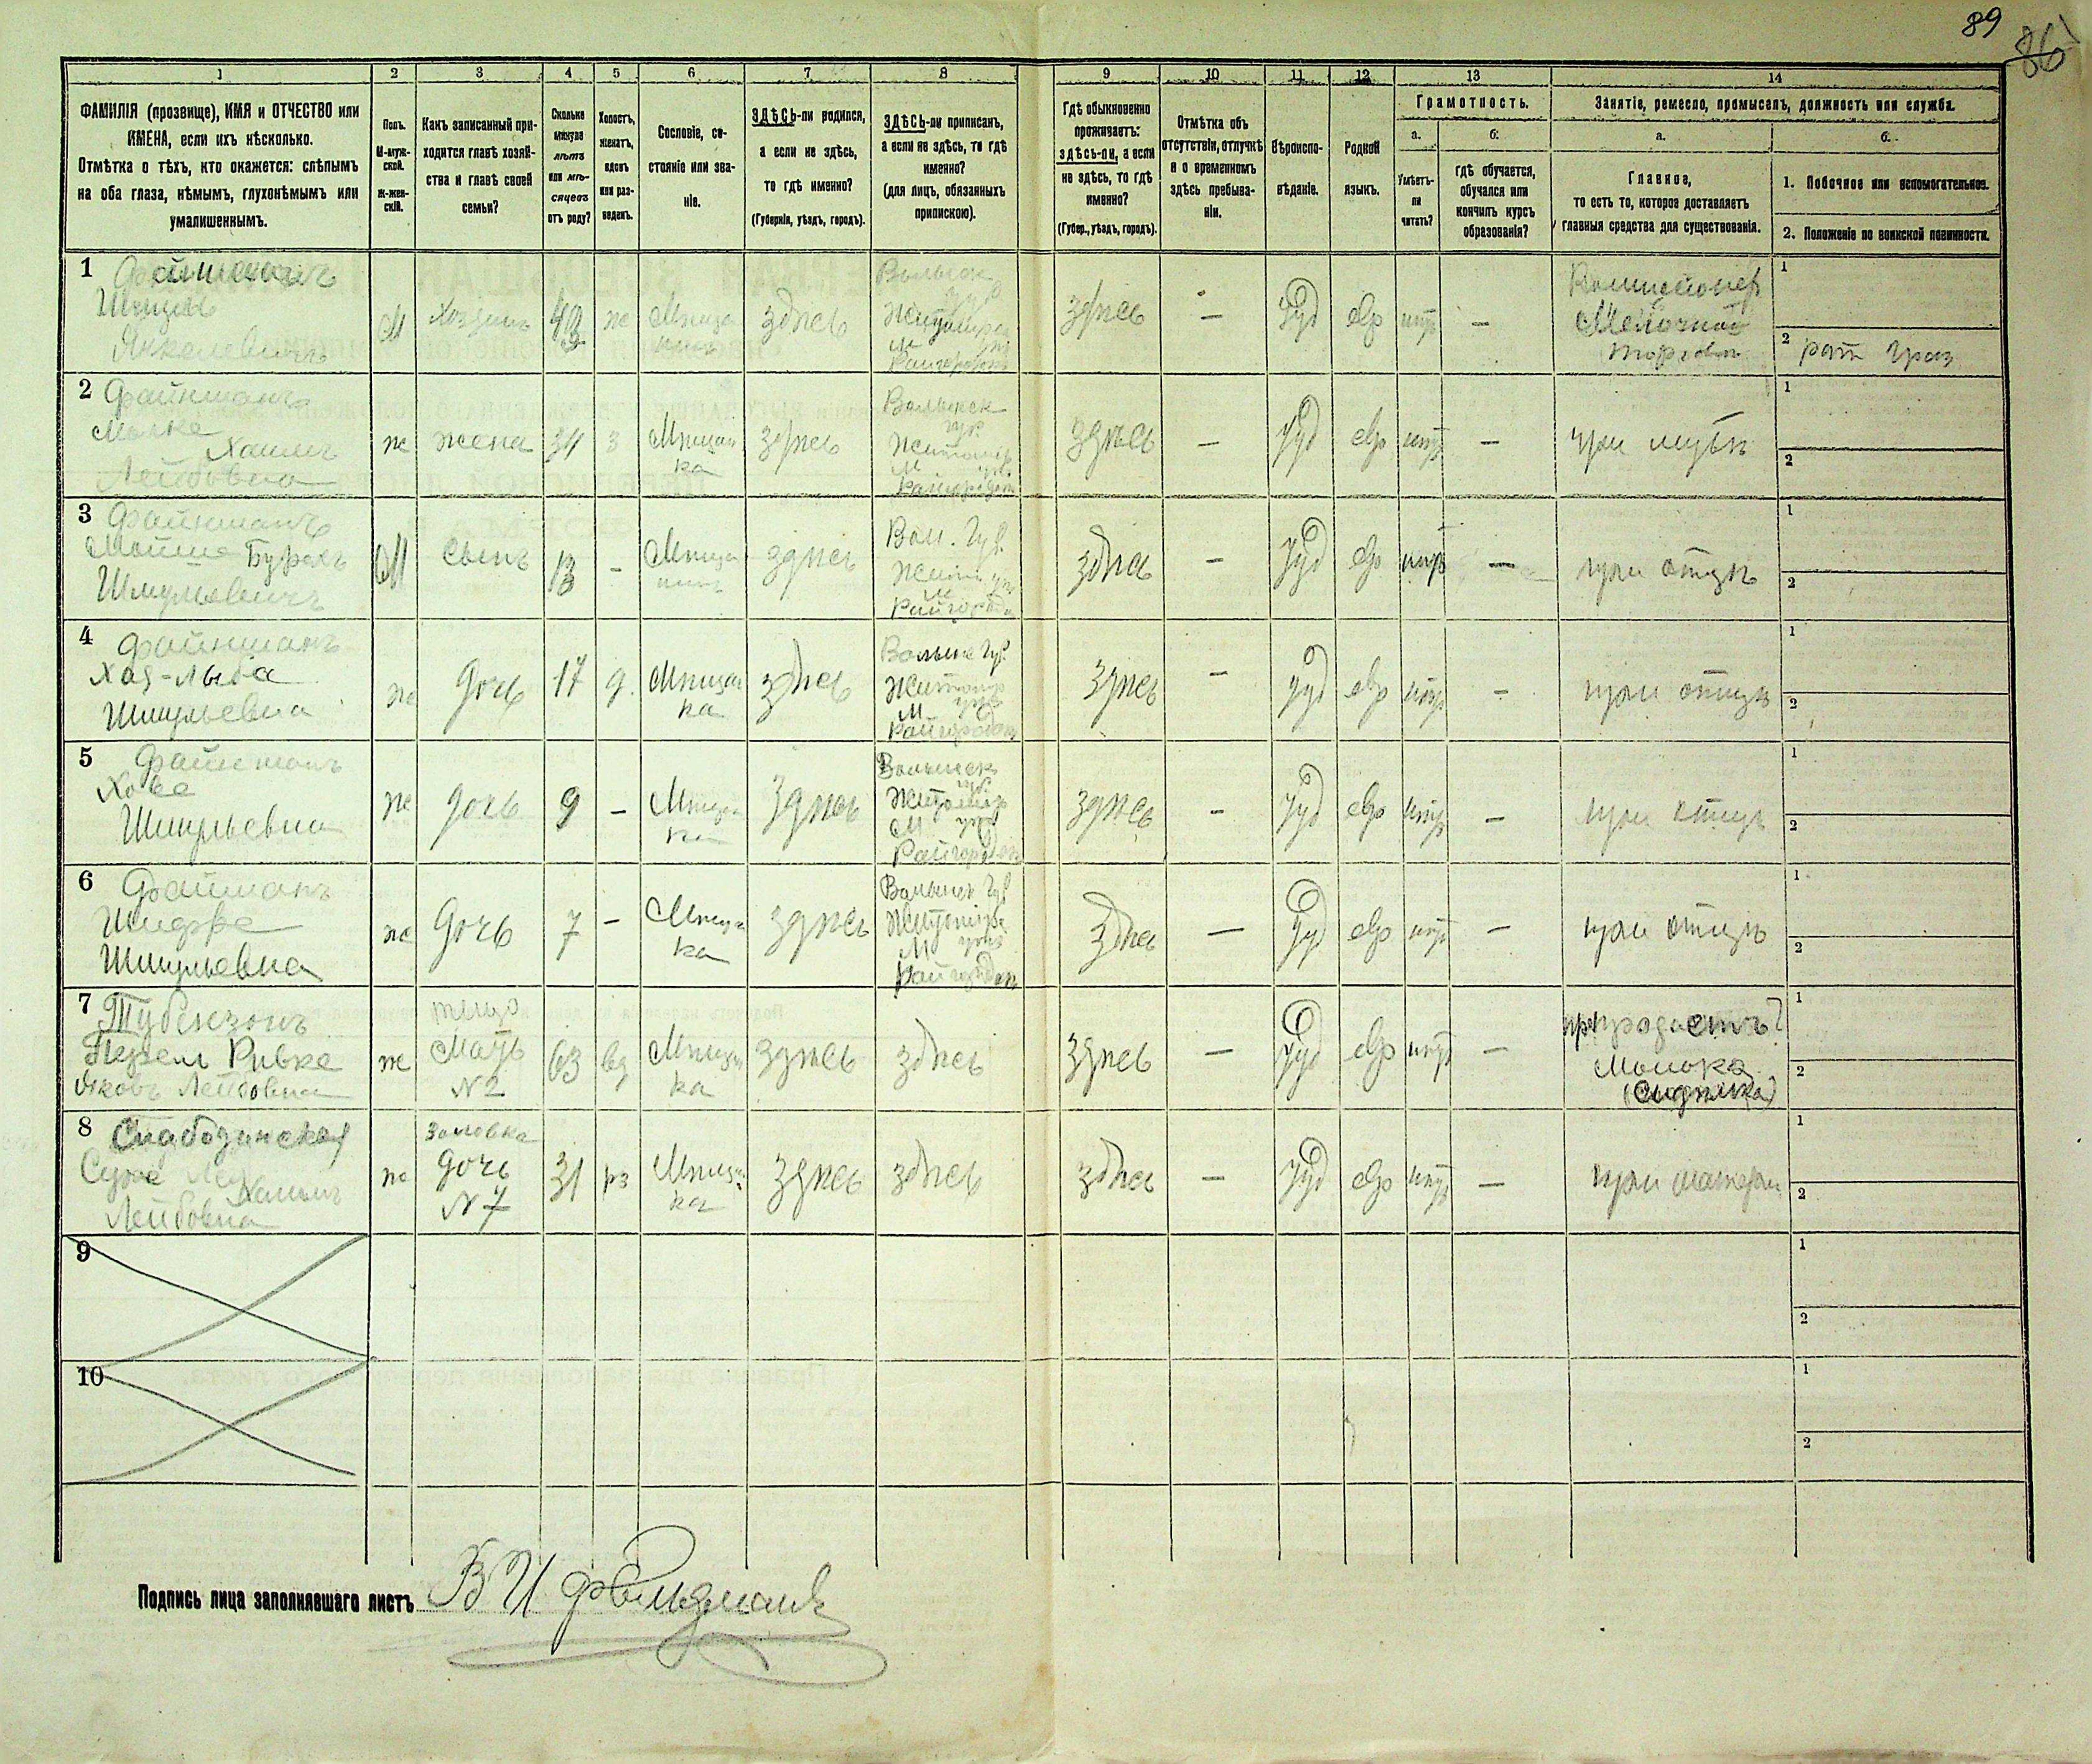 89
86
1 2 3 4 5 6 7 8 9 10 11 12 13 14
ФАМИЛІЯ (прозвище), ИМЯ и ОТЧЕСТВО или
ИМЕНА, если ихъ нѣсколько.
Отмѣтка о тѣхъ, кто окажется: слѣпымъ
на оба глаза, нѣмымъ, глухонѣмымъ или
умалишеннымъ.
Полъ.
М-муж-
ской.
Ж-жен-
скій.
Какъ записанный при-
ходится главѣ хозяй-
ства и главѣ своей
семьи?
Сколько
минуло
лѣтъ
или мѣ-
сяцевъ
отъ роду?
Холостъ,
женатъ,
вдовъ
или раз-
веденъ.
Сословіе, со-
стояніе или зва-
ніе.
ЗДѢСЬ-ли родился,
а если не здѣсь,
то гдѣ именно?
(Губернія, уѣздъ, городъ).
ЗДѢСЬ-ли приписанъ,
а если не здѣсь, то гдѣ
именно?
(для лицъ, обязанныхъ
припискою).
Гдѣ обыкновенно
проживаетъ:
здѣсь-ли, а если
не здѣсь, то гдѣ
именно?
(Губер., уѣздъ, городъ).
Отмѣтка объ
отсутствіи, отлучкѣ
и о временномъ
здѣсь пребыва-
ніи.
Вѣроиспо-
вѣданіе.
Родной
языкъ.
Грамотность.
а.
Умѣетъ-
ли
читать?
б.
гдѣ обучается,
обучался или
кончилъ курсъ
образованія?
Занятіе, ремесло, промыселъ, должность или служба.
а.
Главное,
то есть то, которое доставляетъ
главныя средства для существованія.
б.
1. Побочное или вспомогательное.
2. Положеніе по воинской повинности.
1 Файнманъ
Шмуль
Янкелевичъ
М Хозяинъ 43 ж Мѣща
нинъ здѣсь
Волынск
губ
Житомірск
м уѣз
Райгородокъ
здѣсь — Іуд евр — Комисіонер
Мелочной
торговли
1
2
2 Файнманъ
Малка
Хаимъ
Лейбовна
ж жена 34 з Мѣщан
ка здѣсь
Волынск
губ
Житомір
м уѣз
Райгородокъ
здѣсь — Іуд евр — при мужѣ
1
2
3 Файнманъ
Мойше Бурахъ
Шмульевичъ
М Сынъ 13 - Мѣща
нинъ здѣсь
Вол. Губ.
Жит. уѣз
м
Райгородо
здѣсь — Іуд евр — при отцѣ
1
2
4 Файнманъ
Хая-Лыба
Шмульевна
ж дочь 17 д. Мѣщан
ка здѣсь
Волынс Губ.
Житомір
м уѣз
Райгородокъ
здѣсь — Іуд евр - при отцѣ
1
2
5 Файнманъ
Хова
Шмульевна
ж дочь 9 — Мѣща
ка здѣсь
Волынск
губ.
Житомір
м уѣз
Райгородокъ
здѣсь - Іуд евр — при отцѣ
1
2
6 Файнманъ
Шифра
Шмульевна
ж дочь 7 — Мѣща
ка здѣсь
Волынск Губ
Житомірс
м уѣз
Райгородокъ
здѣсь — Іуд евр — при отцѣ
1
2
7
Перель Ривка
Яковъ Лейбовна
ж теща
Мать
№2
63 вд Мѣщан
ка здѣсь здѣсь здѣсь — Іуд евр —
Молока
(Сидѣлка)
1
2
8 Слабодзинская
Сура
Хаимъ
Лейбовна
ж Золовка
дочь
№7
31 рз Мѣщан
ка здѣсь здѣсь здѣсь — Іуд евр — при матери
1
2
9
1
2
10
1
2
Подпись лица заполнявшаго листъ В И Фельдманъ